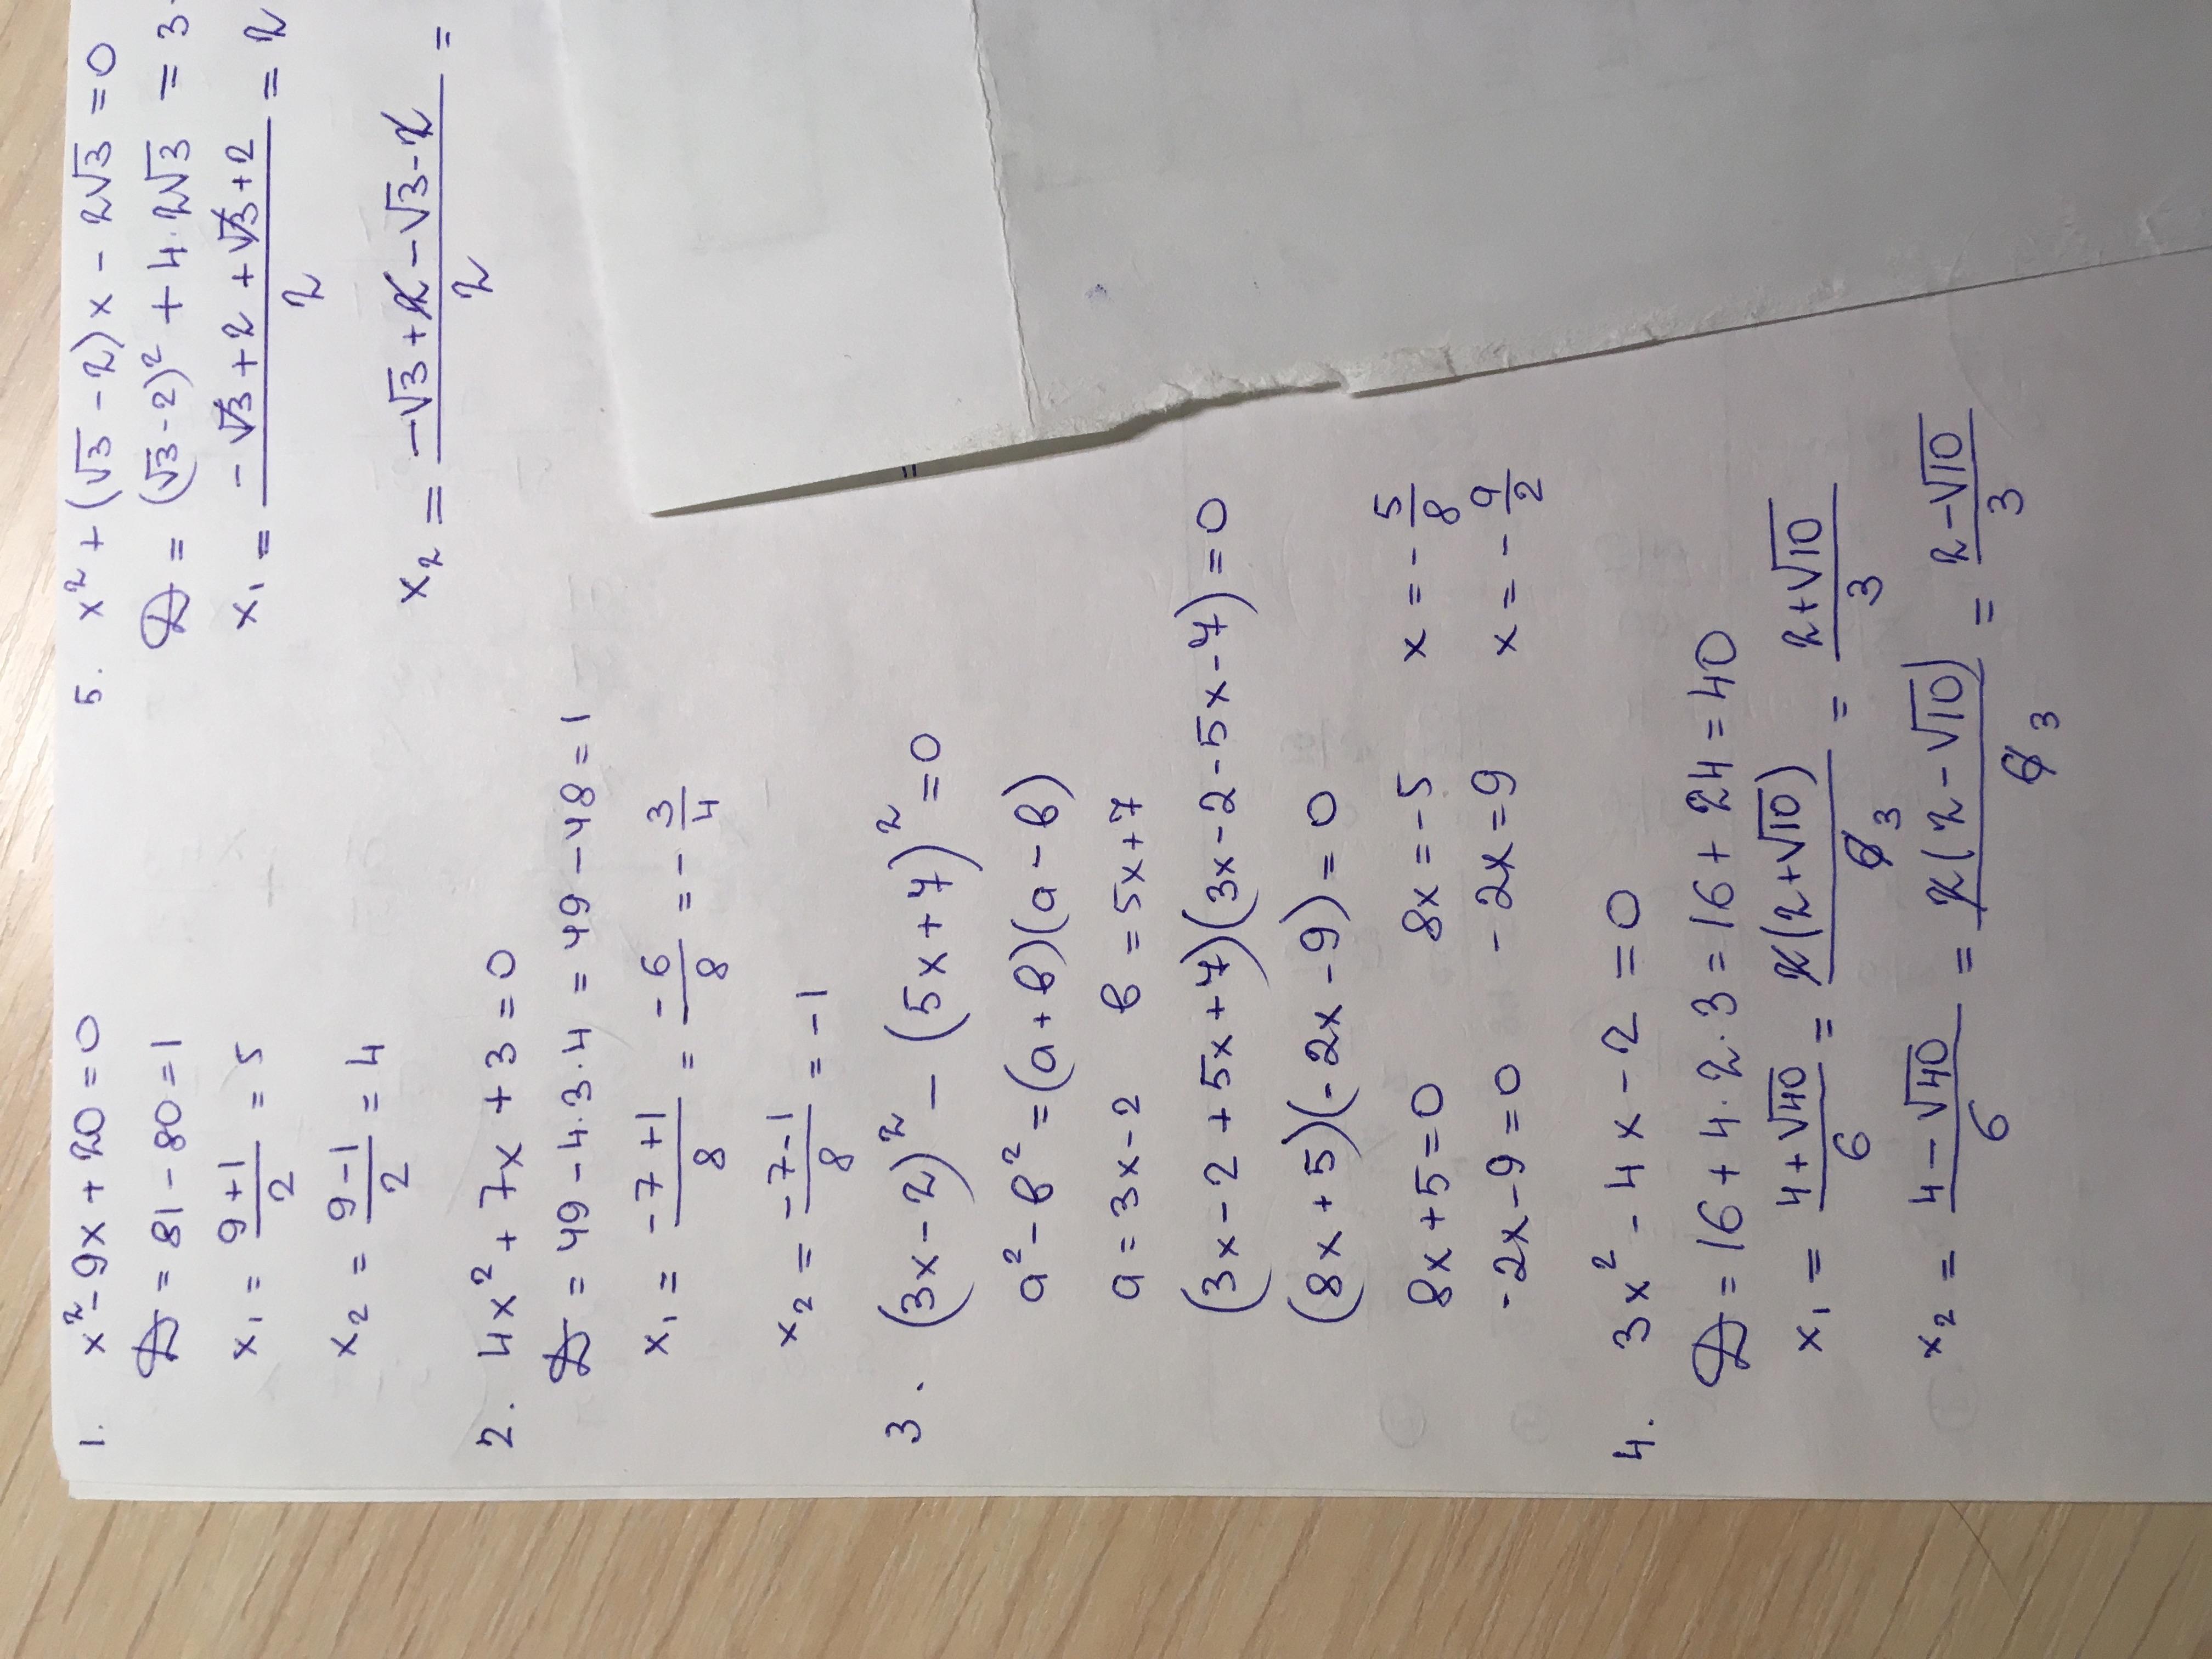 1. x² - 9x + 20 = 0
D = 81 - 80 = 1
x₁ = (9 + 1)/2 = 5
x₂ = (9 - 1)/2 = 4
2. 4x² + 7x + 3 = 0
D = 49 - 4·3·4 = 49 - 48 = 1
x₁ = (-7 + 1)/8 = -6/8 = -3/4
x₂ = (-7 - 1)/8 = -1
3. (3x - 2)² - (5x + 7)² = 0
a² - b² = (a + b)(a - b)
a = 3x - 2 b = 5x + 7
(3x - 2 + 5x + 7)(3x - 2 - 5x - 7) = 0
(8x + 5)(-2x - 9) = 0
8x + 5 = 0 8x = -5 x = -5/8
-2x - 9 = 0 -2x = 9 x = -9/2
4. 3x² - 4x - 2 = 0
D = 16 + 4·2·3 = 16 + 24 = 40
x₁ = (4 + √40)/6 = 2(2 + √10)/6 3 = (2 + √10)/3
x₂ = (4 - √40)/6 = 2(2 - √10)/6 3 = (2 - √10)/3
5. x² + (√3 - 2)x - 2√3 = 0
D = (√3 - 2)² + 4·2√3 = 3
x₁ = (-√3 + 2 + √3 + 2)/2 = 2
x₂ = (-√3 + 2 - √3 - 2)/2 =